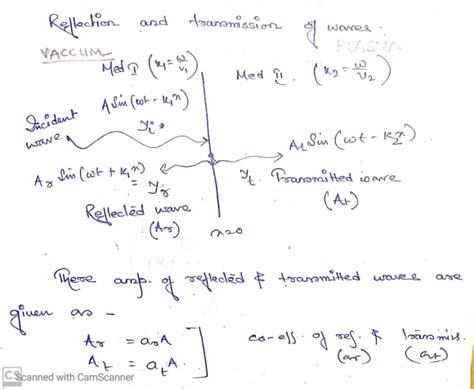 Reflection and transmission of waves.
VACCUM
PLASMA
Med I (k₁ = ω/v₁)
Med II. (k₂ = ω/v₂)
Incident wave
A Sin (ωt - k₁x)
yᵢ
At Sin (ωt - k₂x)
Ar Sin (ωt + k₁x) = yr
yt. Transmitted wave
(At)
Reflected wave
(Ar)
x=0
These amp. of reflected & transmitted wave are
given as -
Ar = arA
At = atA.
co-eff. of ref. & transmiss.
(ar) (at)
CS Scanned with CamScanner